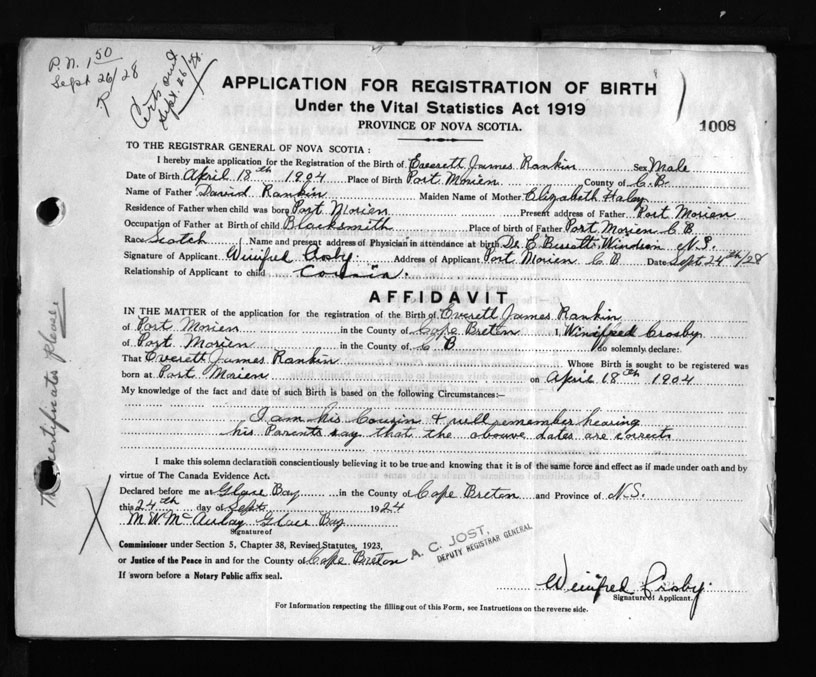 P. N. 1 50
Sept 26/28
Certs out
Sept. 26/28.
APPLICATION FOR REGISTRATION OF BIRTH
Under the Vital Statistics Act 1919
PROVINCE OF NOVA SCOTIA.
1008
TO THE REGISTRAR GENERAL OF NOVA SCOTIA :
I hereby make application for the Registration of the Birth of Everett James Rankin Sex Male
Date of Birth April 18th 1904 Place of Birth Port Morien County of C. B
Name of Father David Rankin Maiden Name of Mother Elizabeth Haley
Residence of Father when child was born Port Morien Present address of Father Port Morien
Occupation of Father at Birth of child Blacksmith Place of birth of Father Port Morien C B
Race Scotch Name and present address of Physician in attendance at birth Dr. E Windsor N. S.
Signature of Applicant Winifred Crosby. Address of Applicant Port Morien C B Date Sept. 24th/28
Relationship of Applicant to child Cousin.
AFFIDAVIT
IN THE MATTER of the application for the registration of the Birth of Everett James Rankin
of Port Morien in the County of Cape Breton I, Winifred Crosby
of Port Morien in the County of C B do solemnly declare:
That Everett James Rankin Whose Birth is sought to be registered was
born at Port Morien on April 18th 1904
My knowledge of the fact and date of such Birth is based on the following Circumstances:—
I am his Cousin & well remember hearing
his Parents say that the above dates are correct
I make this solemn declaration conscientiously believing it to be true and knowing that it is of the same force and effect as if made under oath and by
virtue of The Canada Evidence Act.
Declared before me at Glace Bay in the County of Cape Breton and Province of N. S.
this 24th day of Sept. 1924
M W McAulay Glace Bay
Signature of
Commissioner under Section 5, Chapter 38, Revised Statutes, 1923,
or Justice of the Peace in and for the County of Cape Breton
If sworn before a Notary Public affix seal.
A. C. JOST,
DEPUTY REGISTRAR GENERAL
Winifred Crosby.
Signature of Applicant.
For Information respecting the filling out of this Form, see Instructions on the reverse side.
certificates please